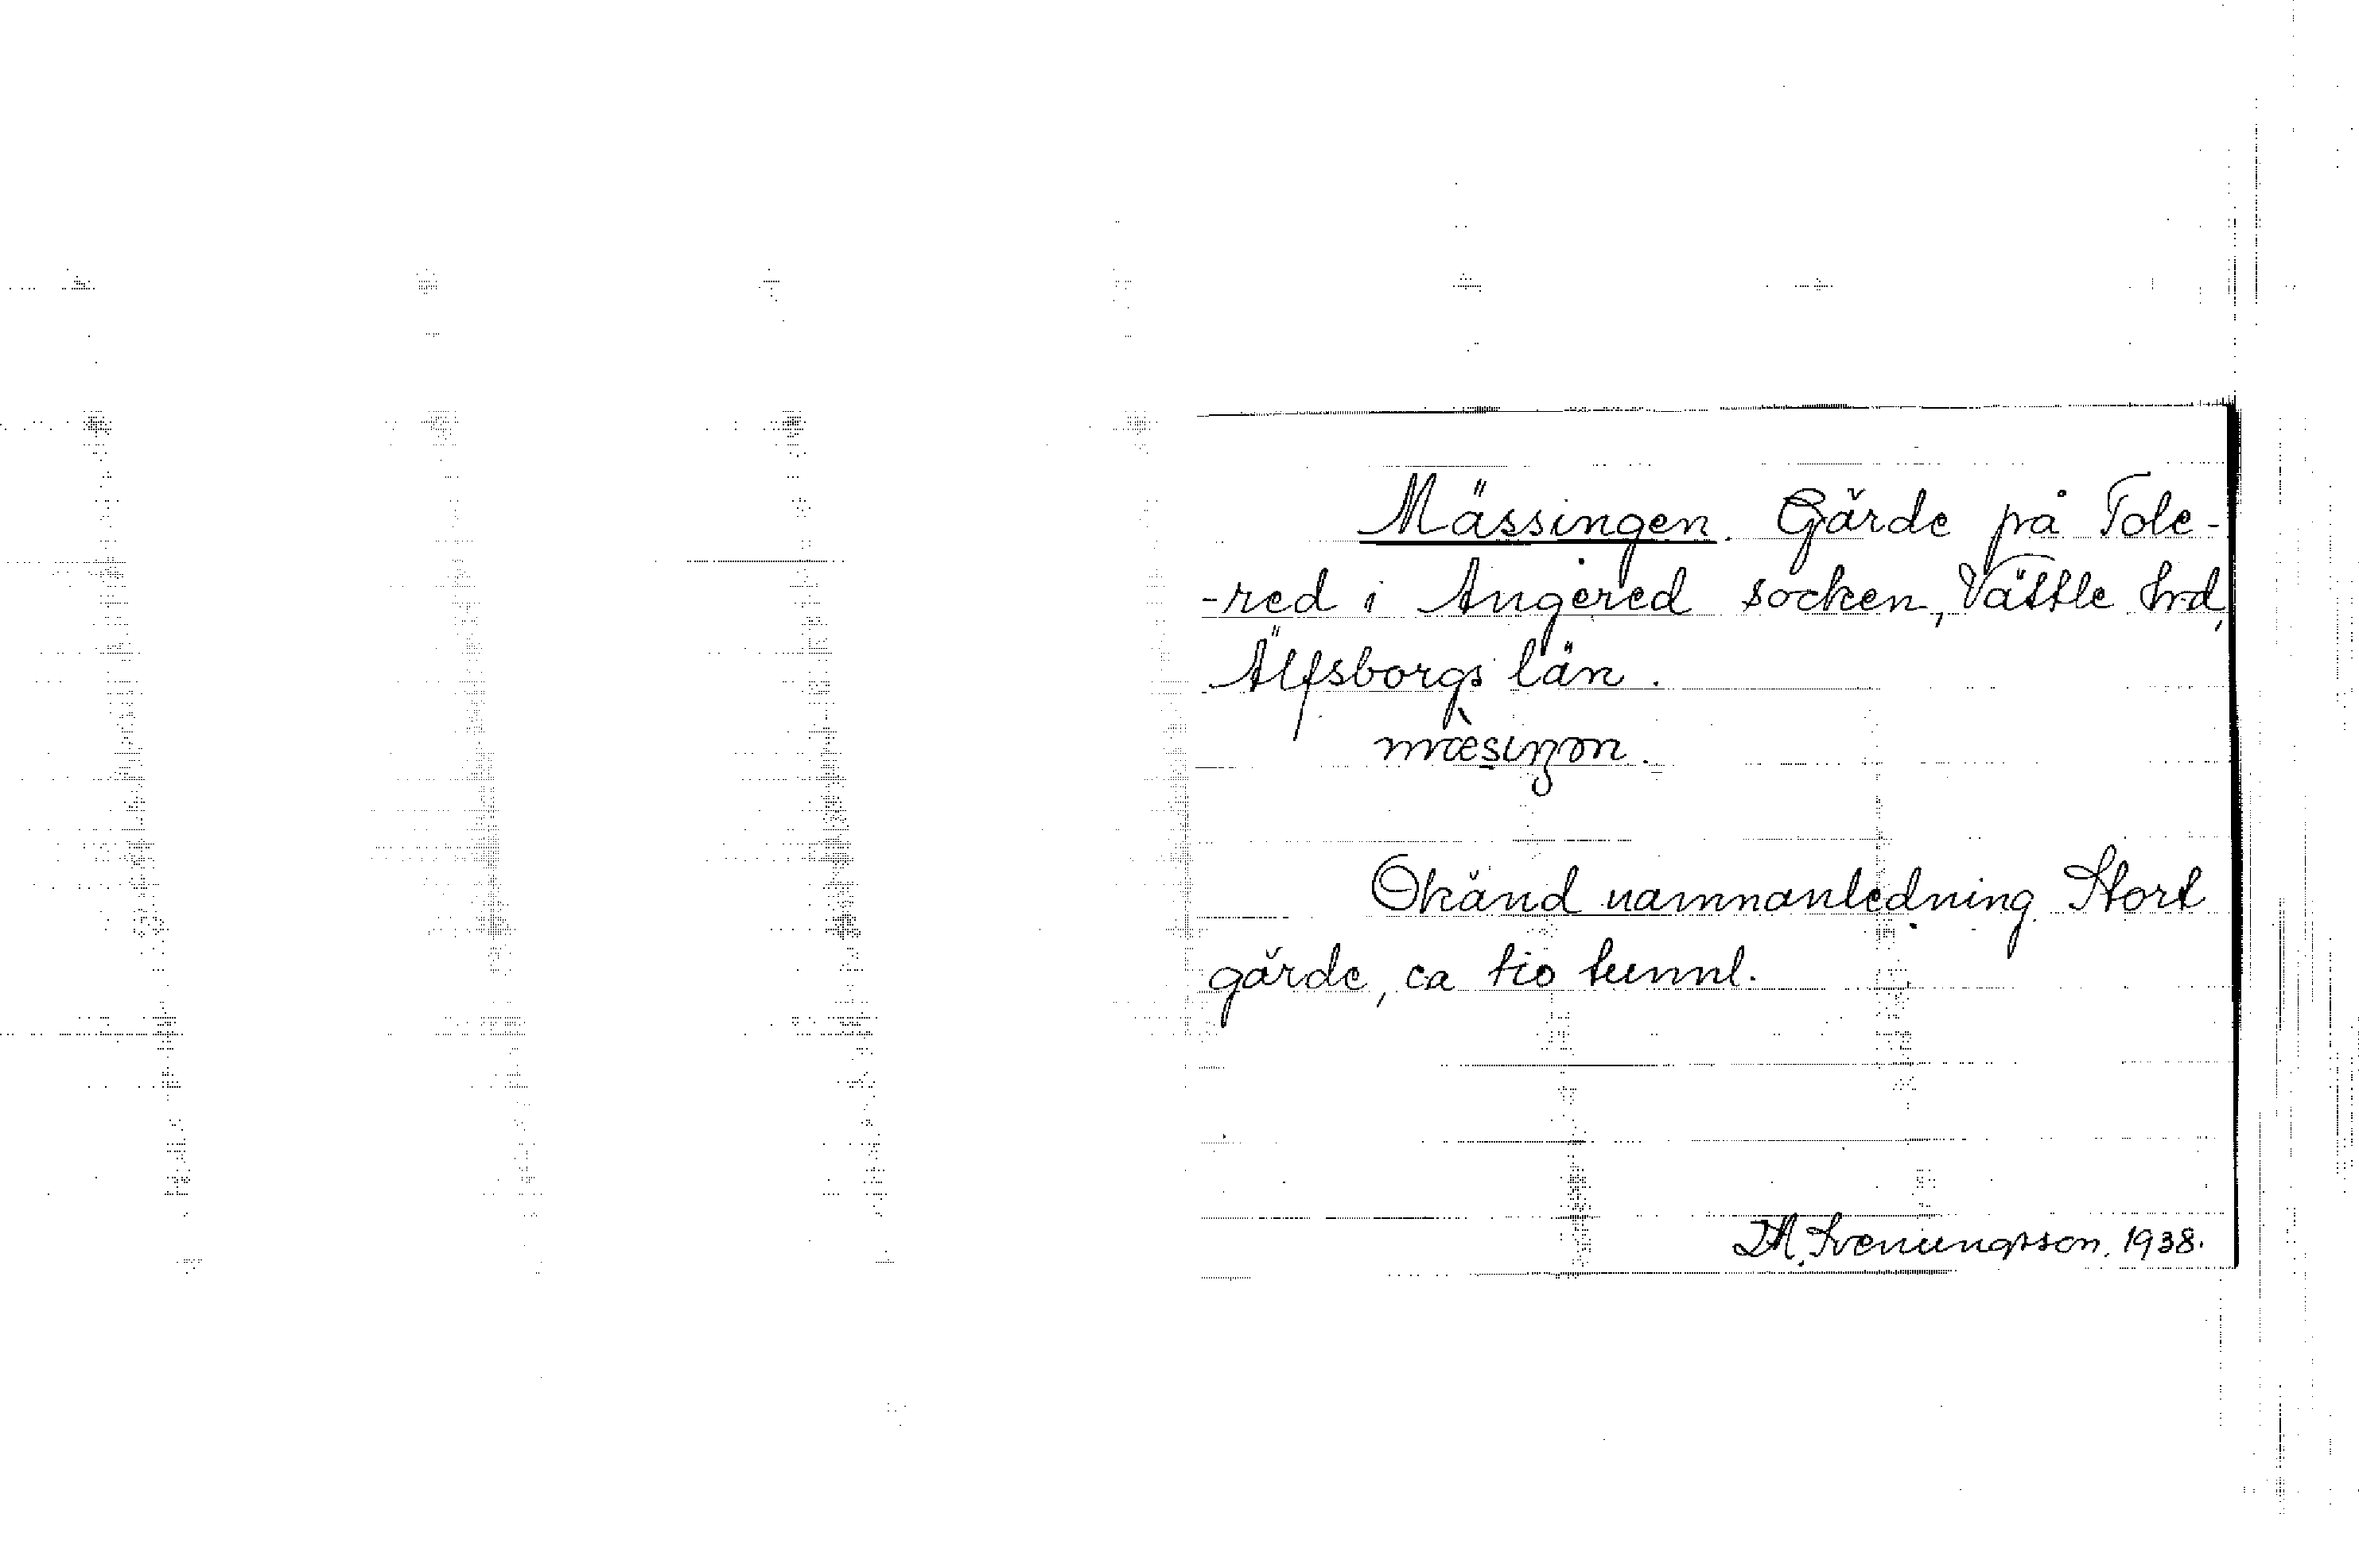 Mässingen. Gärde på Tole-
-red i Angered socken, Vättle hrd,
Älfsborgs län.
mæsiŋən.
Okänd namnanledning. Stort
gärde, ca tio tunnl.
Svenungsson, 1938.